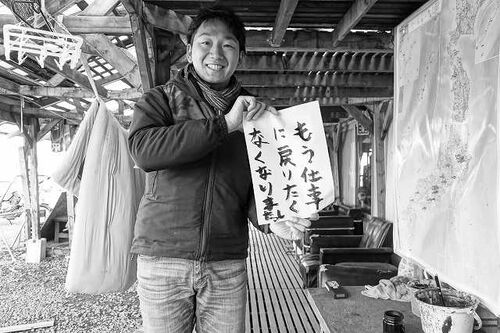 もう仕事
に戻りたく
なくなりました